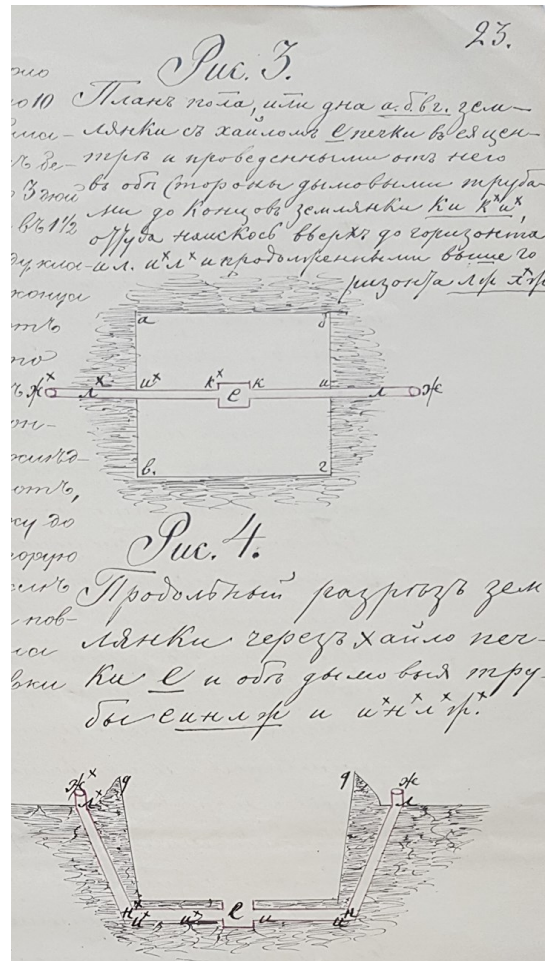 23.
Рис. 3.
Планъ пола, или дна а.б.в.г. зем-
лянки съ хайломъ е печки въ ея цен-
трѣ и проведенными отъ него
въ обѣ стороны дымовыми труба-
ми до концовъ землянки ки кˣиˣ,
оттуда наискось вверхъ до горизонта
ил. иˣлˣ и продолженными выше го
ризонта лж лˣж
а б
жˣ лˣ иˣ кˣ е к и л ж
в. г
Рис. 4.
Продольный разрѣзъ зем
лянки черезъ хайло печ-
ки е и обѣ дымовыя тру-
бы еинлж и иˣнˣлˣжˣ.
жˣ лˣ д д ж л
нˣ иˣ иˣ е и и н
10
3 дюй
въ 1½
конца
отъ
до